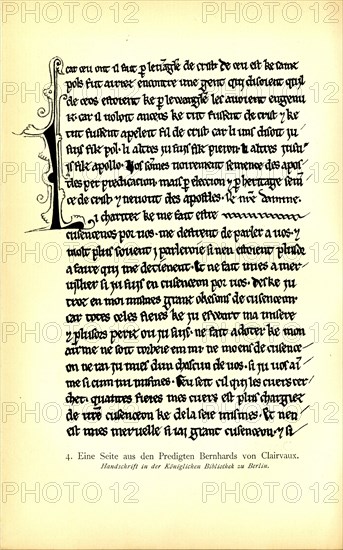 car ceu ont il fut p lewãgle de crist de ceu est ke saint
pols fut airiez encontre une gent qui disoient quil
de ceos estoient ke p lewangile les auoient engenui
car il uoloit anceos ke tut fussent de crist & ke
tut fussent apeleit fil de crist car li uns disoit ju
suys filz pol. li altres ju suys filz pieron. li altres ju suis
filz apollo. Nos somes uoirement semence des apos
tles per predication. mais p election & p heritage
ce de crist & des apostles. ke
chariteiz ke me fait estre
cusencenos por uos. me destrent de parler a uos. &
molt plus souent i parleroie si nen estoient plusor
a faire qui me detienent. Et ne fait mies a mer
uillier si ju suys en cusencon por uos. deske ju
truz en moi mismes grant okesons de cusencon
car totes celes fieres ke ju eswart ma misere
& plusors peril ou ju suys. ne fait a doter ke mon
airme ne soit torbeie em mi. ne moens de cusence
on ne iai ju mies dun chascun de uos. si ju uos ai
me si cum mi mismes. Ceu seit cil qui les cuers cer
chet. quantes fieres mes cuers est plus chargiez
de ure cusencon ke de la seie mismes. Et nen
est mies merueille si iai grant cusencon. & si
4. Eine Seite aus den Predigten Bernhards von Clairvaux.
Handschrift in der Königlichen Bibliothek zu Berlin.
PHOTO12